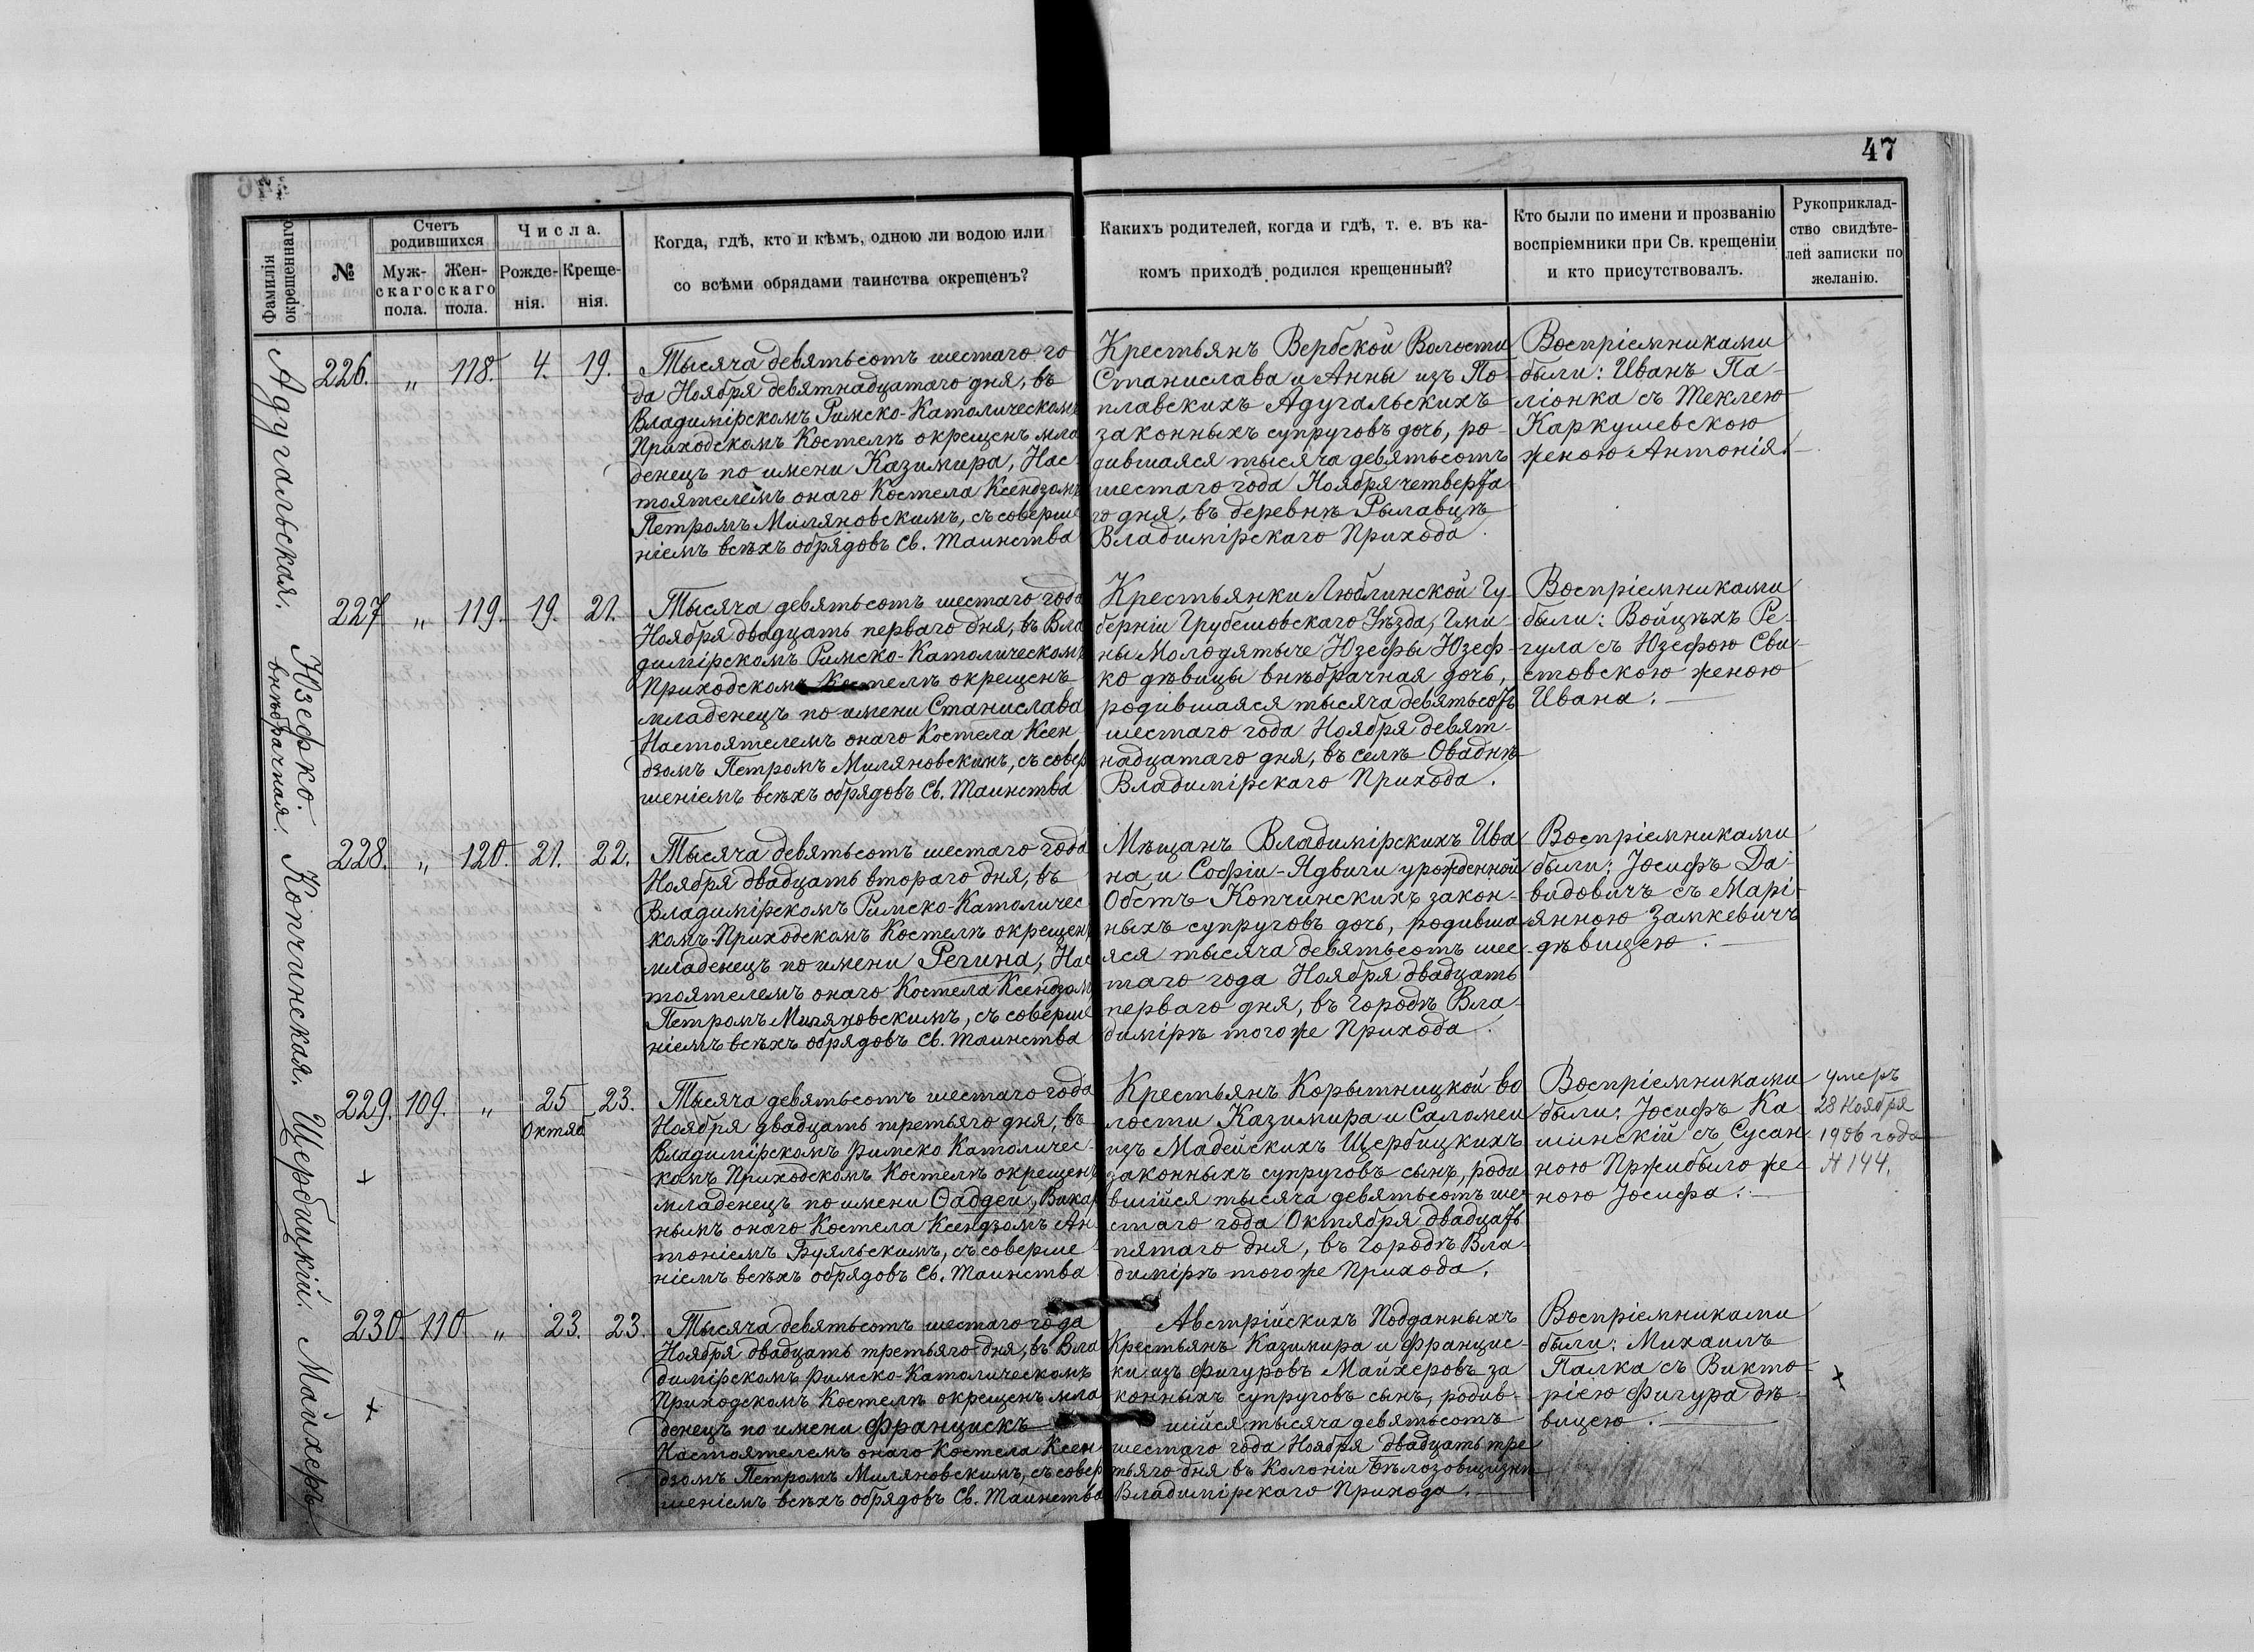 47
Фамилія окрещеннаго.
№
Счетъ родившихся
Муж-скаго пола.
Жен-скаго пола.
Числа.
Рожде-нія.
Креще-нія.
Когда, гдѣ, кто и кѣмъ, одною ли водою или
со всѣми обрядами таинства окрещенъ?
Какихъ родителей, когда и гдѣ, т. е. въ ка-
комъ приходѣ родился крещенный?
Кто были по имени и прозванію
воспріемники при Св. крещеніи
и кто присутствовалъ.
Рукоприклад-
ство свидѣте-
лей записки по
желанію.
Адугальская.
226. „ 118. 4. 19.
Тысяча девятьсотъ шестаго го
да Ноября девятнадцатаго дня, въ
Владимірскомъ Римско-Католическомъ
Приходскомъ Костелѣ окрещенъ мла
денецъ по имени Казимира, Нас-
тоятелемъ онаго Костела Ксендзомъ
Петромъ Миляновскимъ, съ соверше
ніемъ всѣхъ обрядовъ Св. Таинства
Крестьянъ Вербской Волости
Станислава и Анны изъ По-
плавскихъ Адугальскихъ
законныхъ супруговъ дочь, ро-
дившаяся тысяча девятьсотъ
шестаго года Ноября четверта
го дня, въ деревнѣ Рылавицѣ
Владимірскаго Прихода.
Воспріемниками
были: Иванъ Па-
ліонка съ Теклею
Каркушевскою
женою Антонія.
Юзефко.
внѣбрачная.
227 „ 119. 19. 21.
Тысяча девятьсотъ шестаго года
Ноября двадцать перваго дня, въ Вла
димірскомъ Римско-Католическомъ
Приходскомъ Костелѣ окрещенъ
младенецъ по имени Станислава
Настоятелемъ онаго Костела Ксен
дзомъ Петромъ Миляновскимъ, съ совер
шеніемъ всѣхъ обрядовъ Св. Таинства
Крестьянки Люблинской Гу-
берніи Грубешовскаго Уѣзда, Гми-
ны Молодятыче Юзефы Юзеф-
ко дѣвицы внѣбрачная дочь,
родившаяся тысяча девятьсотъ
шестаго года Ноября девят-
надцатаго дня, въ селѣ Оваднѣ
Владимірскаго Прихода.
Воспріемниками
были: Войцѣхъ Ре-
гула съ Юзефою Сви-
стовскою женою
Ивана.
Копчинская.
228. „ 120. 21. 22.
Тысяча девятьсотъ шестаго года
Ноября двадцать втораго дня, въ
Владимірскомъ Римско-Католичес
комъ Приходскомъ Костелѣ окрещенъ
младенецъ по имени Регина, Нас
тоятелемъ онаго Костела Ксендзомъ
Петромъ Миляновскимъ, съ соверше
ніемъ всѣхъ обрядовъ Св. Таинства
Мѣщанъ Владимірскихъ Ива
на и Софіи-Ядвиги урожденной
Обстъ Копчинскихъ закон-
ныхъ супруговъ дочь, родивша-
яся тысяча девятьсотъ шес-
таго года Ноября двадцать
перваго дня, въ городѣ Вла-
димірѣ того же Прихода.
Воспріемниками
были: Іосифъ Да-
видовичъ съ Марі-
янною Замкевичъ
дѣвицею.
Щербицкій.
229. 109. „ 25 Октяб 23.
+
Тысяча девятьсотъ шестаго года
Ноября двадцать третьяго дня, въ
Владимірскомъ Римско Католичес-
комъ Приходскомъ Костелѣ окрещенъ
младенецъ по имени Ѳаддей, Викар
нымъ онаго Костела Ксендзомъ Ан-
тоніемъ Буяльскимъ, съ соверше-
ніемъ всѣхъ обрядовъ Св. Таинства
Крестьянъ Корытницкой во
лости Казимира и Саломеи
изъ Мадейскихъ Щербицкихъ
законныхъ супруговъ сынъ, роди
вшійся тысяча девятьсотъ ше-
стаго года Октября двадцать
пятаго дня, въ городѣ Вла-
димірѣ того же Прихода.
Воспріемниками
были: Іосифъ Ка-
минскій съ Сусан
ною Пржибыло же-
ною Іосифа.
Умеръ
28 Ноября
1906 года
№ 144.
Майхеръ.
230. 110. „ 23. 23.
+
Тысяча девятьсотъ шестаго года
Ноября двадцать третьяго дня, въ Вла
димірскомъ Римско-Католическомъ
Приходскомъ Костелѣ окрещенъ мла
денецъ по имени Францискъ
Настоятелемъ онаго Костела Ксен
дзомъ Петромъ Миляновскимъ, съ совер
шеніемъ всѣхъ обрядовъ Св. Таинства
Австрійскихъ Подданныхъ
Крестьянъ Казимира и Францис-
ки изъ Фигуровъ Майхеровъ за
конныхъ супруговъ сынъ, родив-
шійся тысяча девятьсотъ
шестаго года Ноября двадцать тре
тьяго дня въ Колоніи Бѣлозовщизнѣ
Владимірскаго Прихода.
Воспріемниками
были: Михаилъ
Палка съ Викто-
ріею Фигура дѣ-
вицею.
+